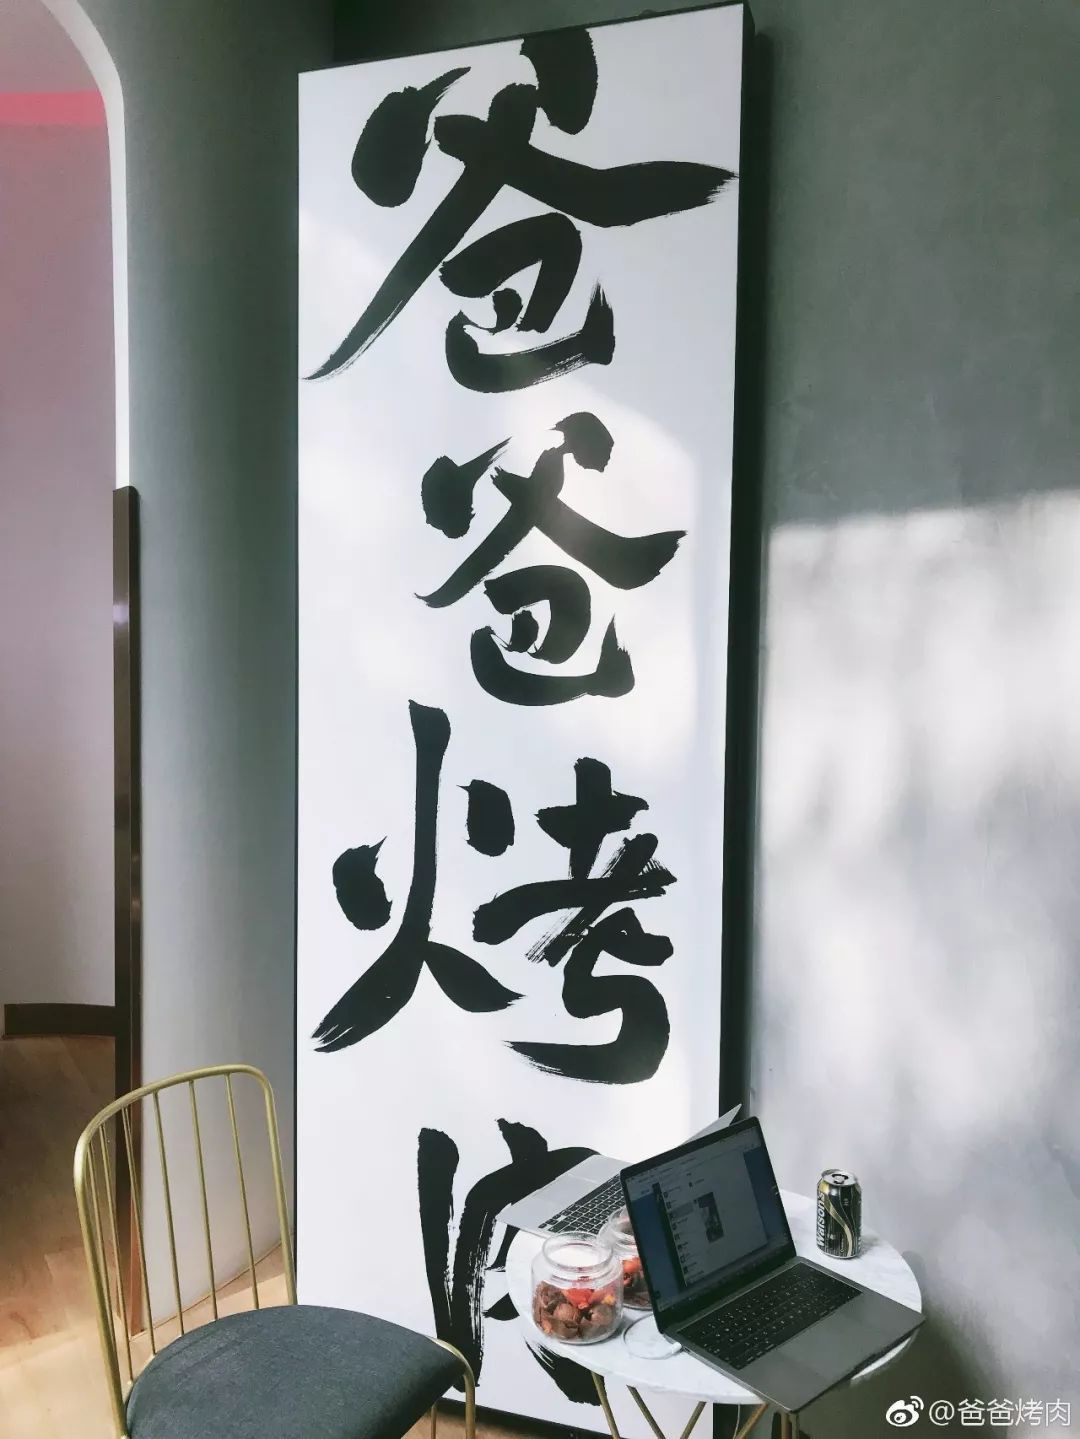 爸爸烤肉
Watsons
@爸爸烤肉